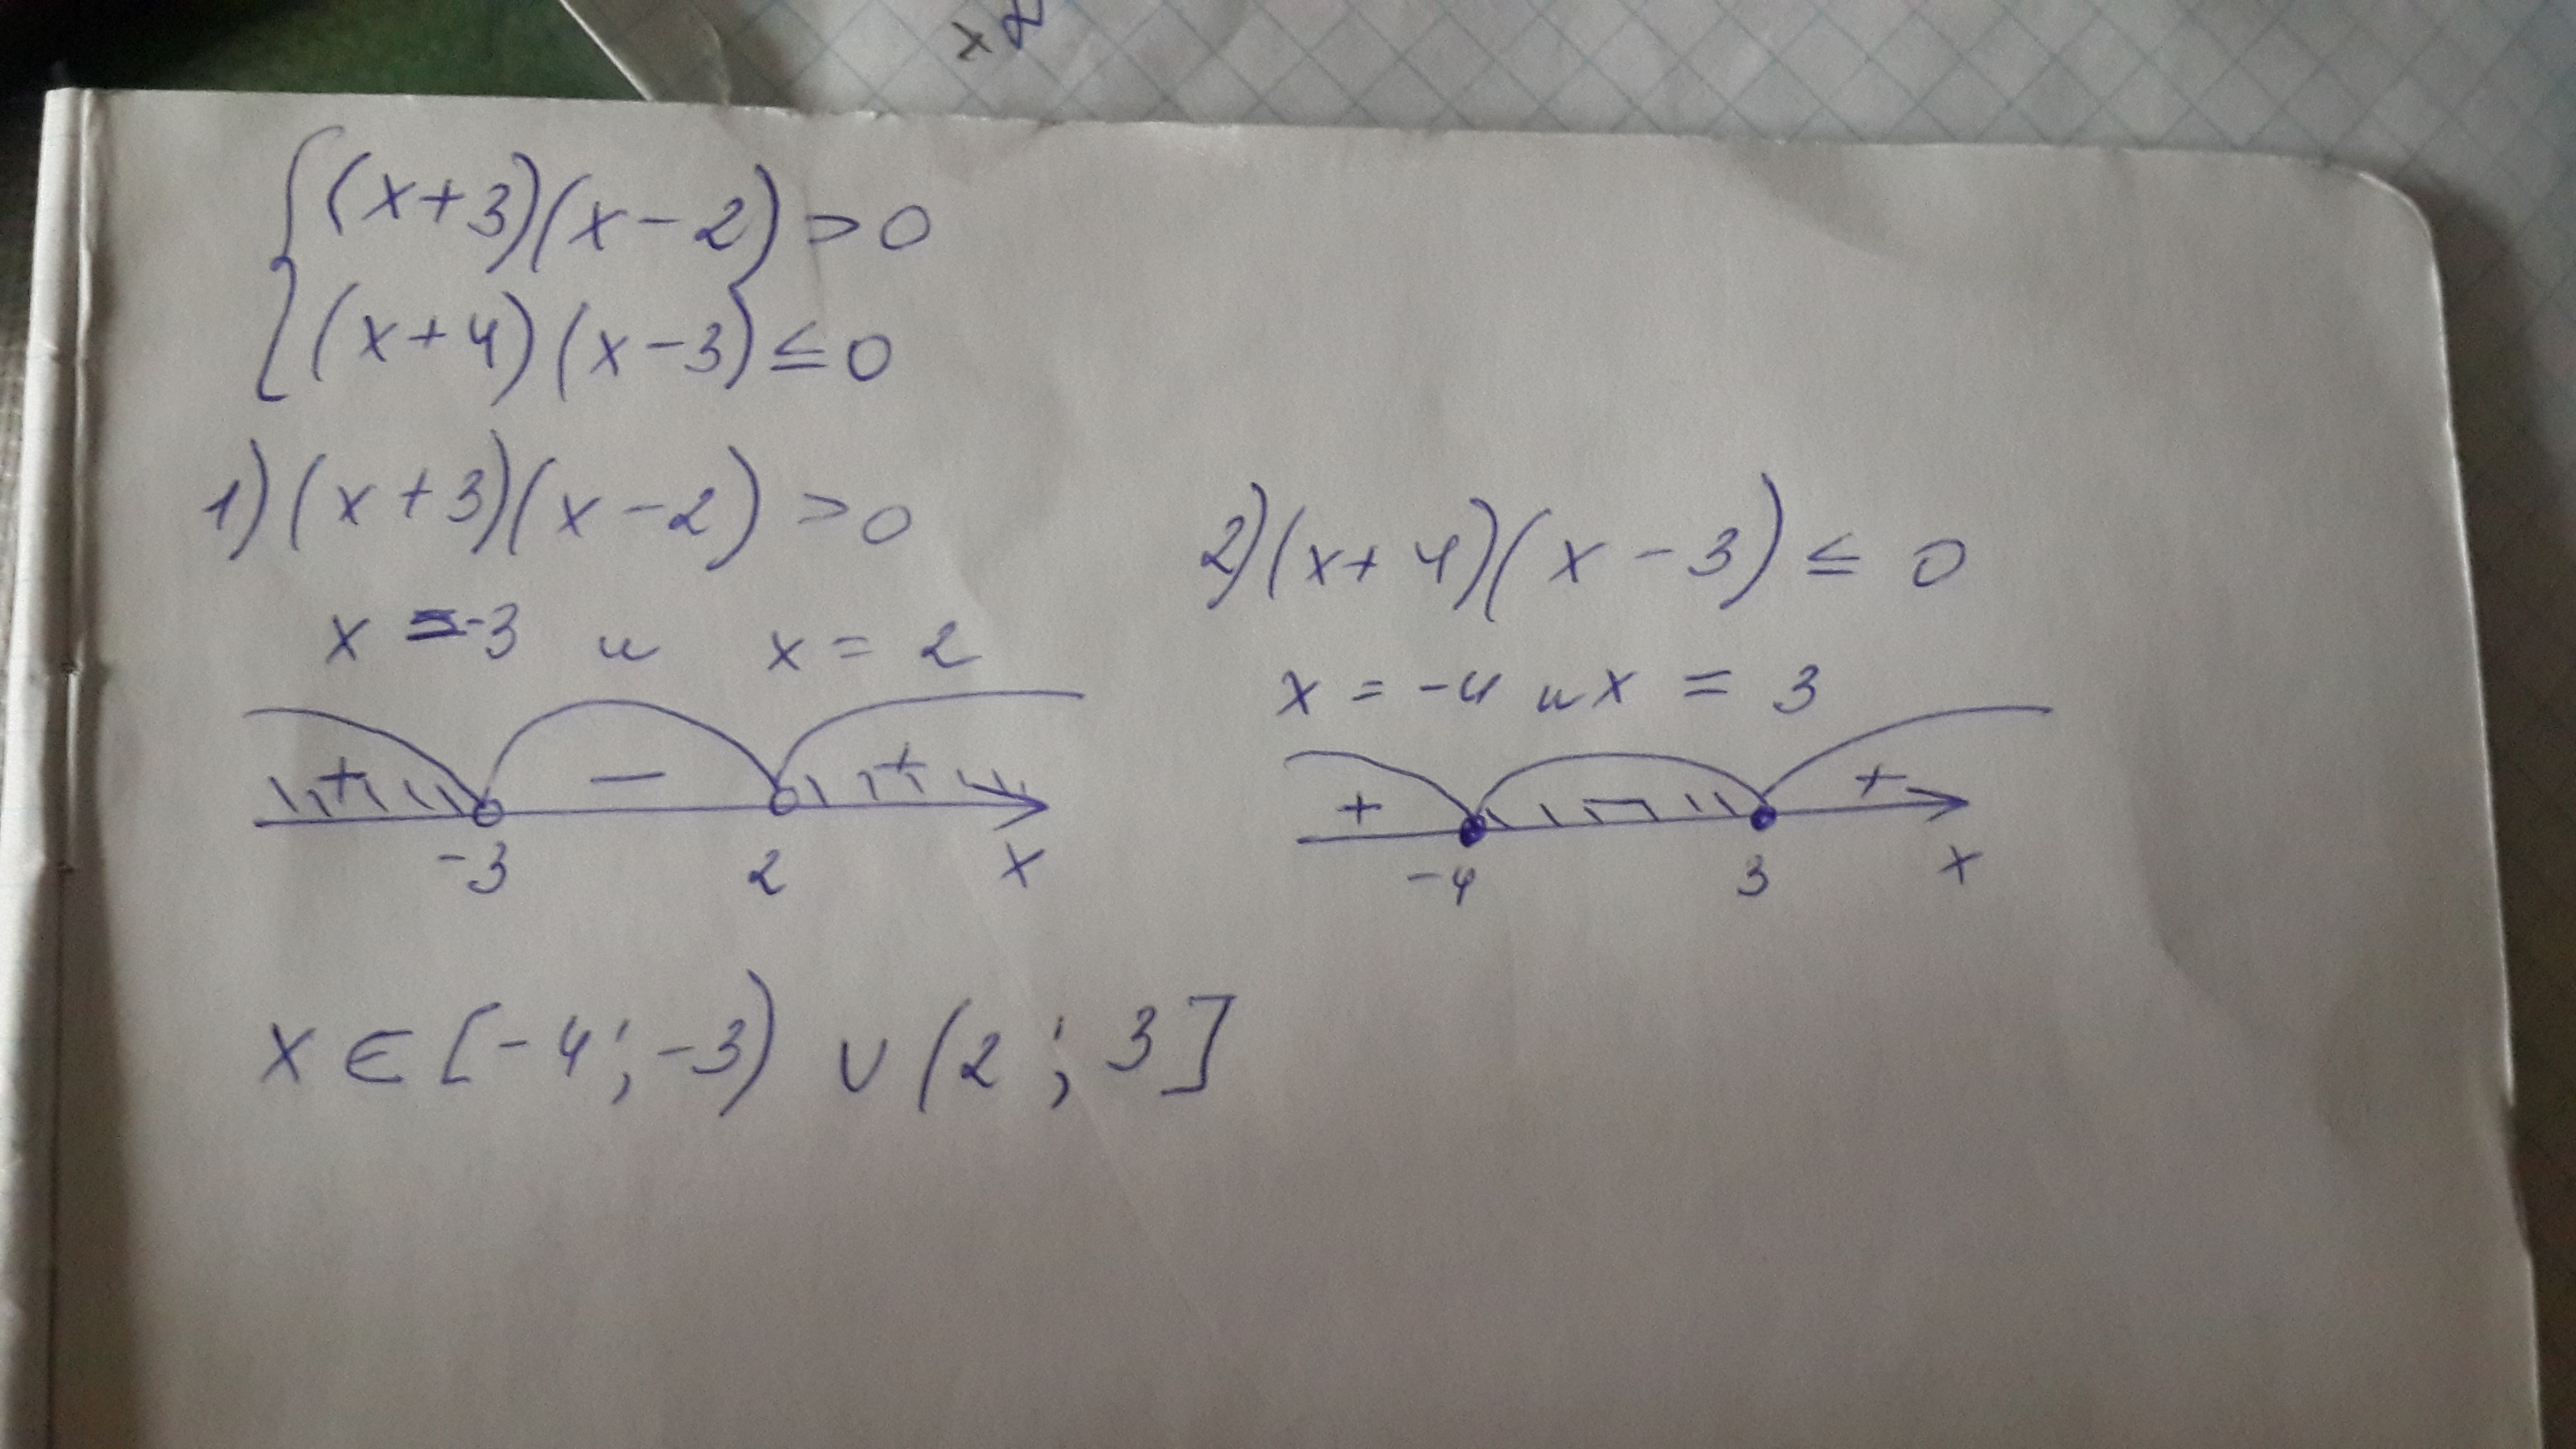 x 2
{(x+3)(x-2)>0
(x+4)(x-3)≤0
1)(x+3)(x-2)>0
x=-3 и x=2
+ - +
-3 2 x
2)(x+4)(x-3)≤0
x=-4 и x=3
+ - +
-4 3 x
x∈[-4;-3)∪(2;3]